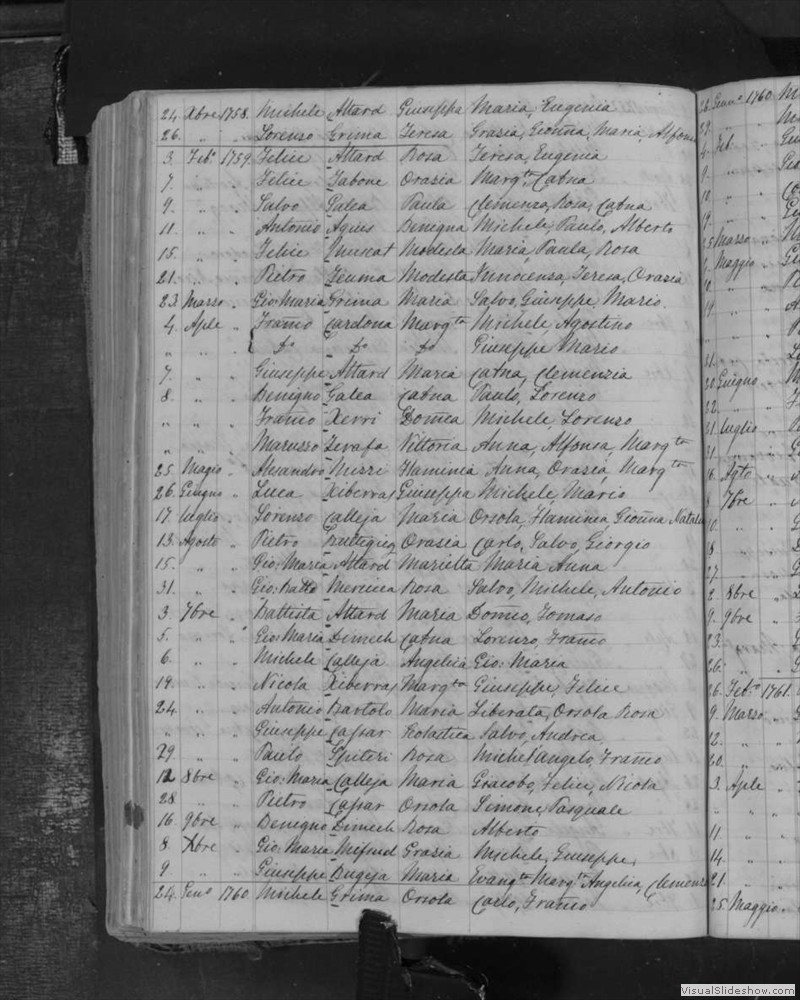 24. Xbre 1758. Michele Attard Giuseppa Maria, Eugenia
26. " . Lorenzo Grima Teresa Grazia, Gioñna, Maria, Alfonsa
3. Feb. 1759. Felice Attard Rosa Teresa, Eugenia
7. " . Felice Tabone Orazia Margta Catna
9. " . Salvo Galea Paula Clemenza, Rosa, Catna
11. " . Antonio Agius Benegna Michele, Paulo, Alberto
15. " . Felice Muscat Modesta Maria, Paula, Rosa
21. " . Pietro Zeuma Modesta Innocenza, Teresa, Orazia
23. Marzo . Gio: Maria Grima Maria Salvo, Giuseppe, Mario.
4. Aple " Franco Cardona Margta Michele, Agostino
" " " { Do Do Do Giuseppe Mario
7. " " Giuseppe Attard Maria Catna, Clemenzia
8. " " Benegno Galea Catna Paulo, Lorenzo
" " " Franco Xerri Domea Michele, Lorenzo
" " " Maruzzo Zerafa Vittoria Anna, Alfonsa, Margta
25. Magio " Alesandro Mizzi Flaminia Anna, Orazia, Margta
26. Giugno " Luca Xiberras Giuseppa Michele, Mario
17. Luglio . Lorenzo Calleja Maria Orsola, Flaminea, Gioñna Natale
13. Agosto . Pietro Buttegieg Orazia Carlo, Salvo, Giorgio
15. " . Gio: Maria Attard Marietta Maria Anna
31. " . Gio: Batta Mercieca Rosa Salvo, Michele, Antonio
3. 7bre . Battista Attard Maria Domco, Tomaso
5. " " Gio: Maria Dimech Catna Lorenzo, Franco
6. " . Michele Calleja Angelica Gio: Maria
19. " . Nicola Xiberras Margta Giuseppe, Felice
24. " . Antonio Bartolo Maria Liberata, Orsola Rosa
" " . Giuseppe Cassar Scolastica Salvo, Andrea
29. " . Paulo Spiteri Rosa Michel'angelo, Franco
12 8bre . Gio: Maria Calleja Maria Giacobo, Felice, Nicola
28. " . Pietro Cassar Orsola Simone, Pasquale
16. 9bre " Benegno Dimech Rosa Alberto
8. Xbre . Gio: Maria Mifsud Grazia Michele, Giuseppe,
9. " . Giuseppe Bugeja Maria Evangta Margta Angelica, Clemenza
24. Geno 1760. Michele Grima Orsola Carlo, Franco
26. Genno 1760.
4. Feb.
9. " "
10. " "
19. " "
25. Marzo "
9. Maggio "
19. " "
21. " "
20. Guigno "
22. " "
21. luglio "
31. " "
16. Agto "
8 7bre "
10. " "
8 " "
27. " "
2. 8bre "
9. 9bre "
23. " "
26. " "
26. Feb. 1761.
9. Marzo "
12. " "
20. " "
3. Aple "
" " "
11. " "
14. " "
21. " "
25. Maggio.
VisualSlideshow.com